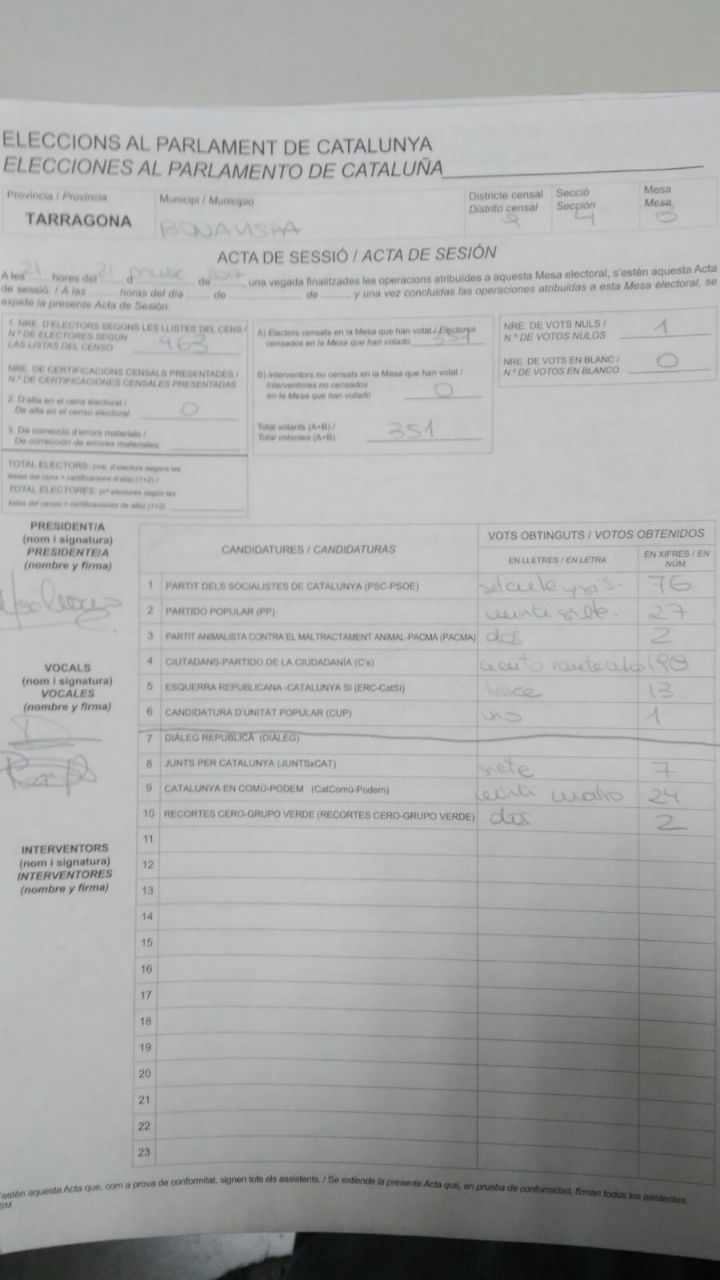 ELECCIONS AL PARLAMENT DE CATALUNYA
ELECCIONES AL PARLAMENTO DE CATALUÑA
Província / Provincia
Municipi / Municipio
Districte censal
Distrito censal
Secció
Sección
Mesa
Mesa
TARRAGONA
BONAVISTA
4
B
ACTA DE SESSIÓ / ACTA DE SESIÓN
A les 21 hores del 21 d de 2017, una vegada finalitzades les operacions atribuïdes a aquesta Mesa electoral, s'estén aquesta Acta
de sessió. / A las ........ horas del día ........ de ........ de ........ y una vez concluidas las operaciones atribuidas a esta Mesa electoral, se
expide la presente Acta de Sesión:
1. NRE. D'ELECTORS SEGONS LES LLISTES DEL CENS /
N.º DE ELECTORES SEGÚN
LAS LISTAS DEL CENSO 463
NRE. DE CERTIFICACIONS CENSALS PRESENTADES /
N.º DE CERTIFICACIONES CENSALES PRESENTADAS
2. D'alta en el cens electoral /
De alta en el censo electoral: 0
3. De correcció d'errors materials /
De corrección de errores materiales:
TOTAL ELECTORS: (nre. d'electors segons les
llistes del cens + certificacions d'alta) (1+2) /
TOTAL ELECTORES: (nº electores según las
listas del censo + certificaciones de alta) (1+2)
A) Electors censats en la Mesa que han votat / Electores
censados en la Mesa que han votado 351
B) Interventors no censats en la Mesa que han votat /
Interventores no censados
en la Mesa que han votado 0
Total votants (A+B) /
Total votantes (A+B) 351
NRE. DE VOTS NULS /
N.º DE VOTOS NULOS 1
NRE. DE VOTS EN BLANC /
N.º DE VOTOS EN BLANCO 0
PRESIDENT/A
(nom i signatura)
PRESIDENTE/A
(nombre y firma)
VOCALS
(nom i signatura)
VOCALES
(nombre y firma)
INTERVENTORS
(nom i signatura)
INTERVENTORES
(nombre y firma)
CANDIDATURES / CANDIDATURAS
VOTS OBTINGUTS / VOTOS OBTENIDOS
EN LLETRES / EN LETRA
EN XIFRES / EN
NÚM.
1 PARTIT DELS SOCIALISTES DE CATALUNYA (PSC-PSOE) 76
2 PARTIDO POPULAR (PP) 27
3 PARTIT ANIMALISTA CONTRA EL MALTRACTAMENT ANIMAL-PACMA (PACMA) dos 2
4 CIUTADANS-PARTIDO DE LA CIUDADANÍA (C's) 198
5 ESQUERRA REPUBLICANA -CATALUNYA SI (ERC-CatSí) trece 13
6 CANDIDATURA D'UNITAT POPULAR (CUP) uno 1
7 DIÀLEG REPÚBLICA (DIÀLEG)
8 JUNTS PER CATALUNYA (JUNTSxCAT) siete 7
9 CATALUNYA EN COMÚ-PODEM (CatComú-Podem) 24
10 RECORTES CERO-GRUPO VERDE (RECORTES CERO-GRUPO VERDE) dos 2
11
12
13
14
15
16
17
18
19
20
21
22
23
estén aquesta Acta que, com a prova de conformitat, signen tots els assistents. / Se extiende la presente Acta que, en prueba de conformidad, firman todos los asistentes.
SM